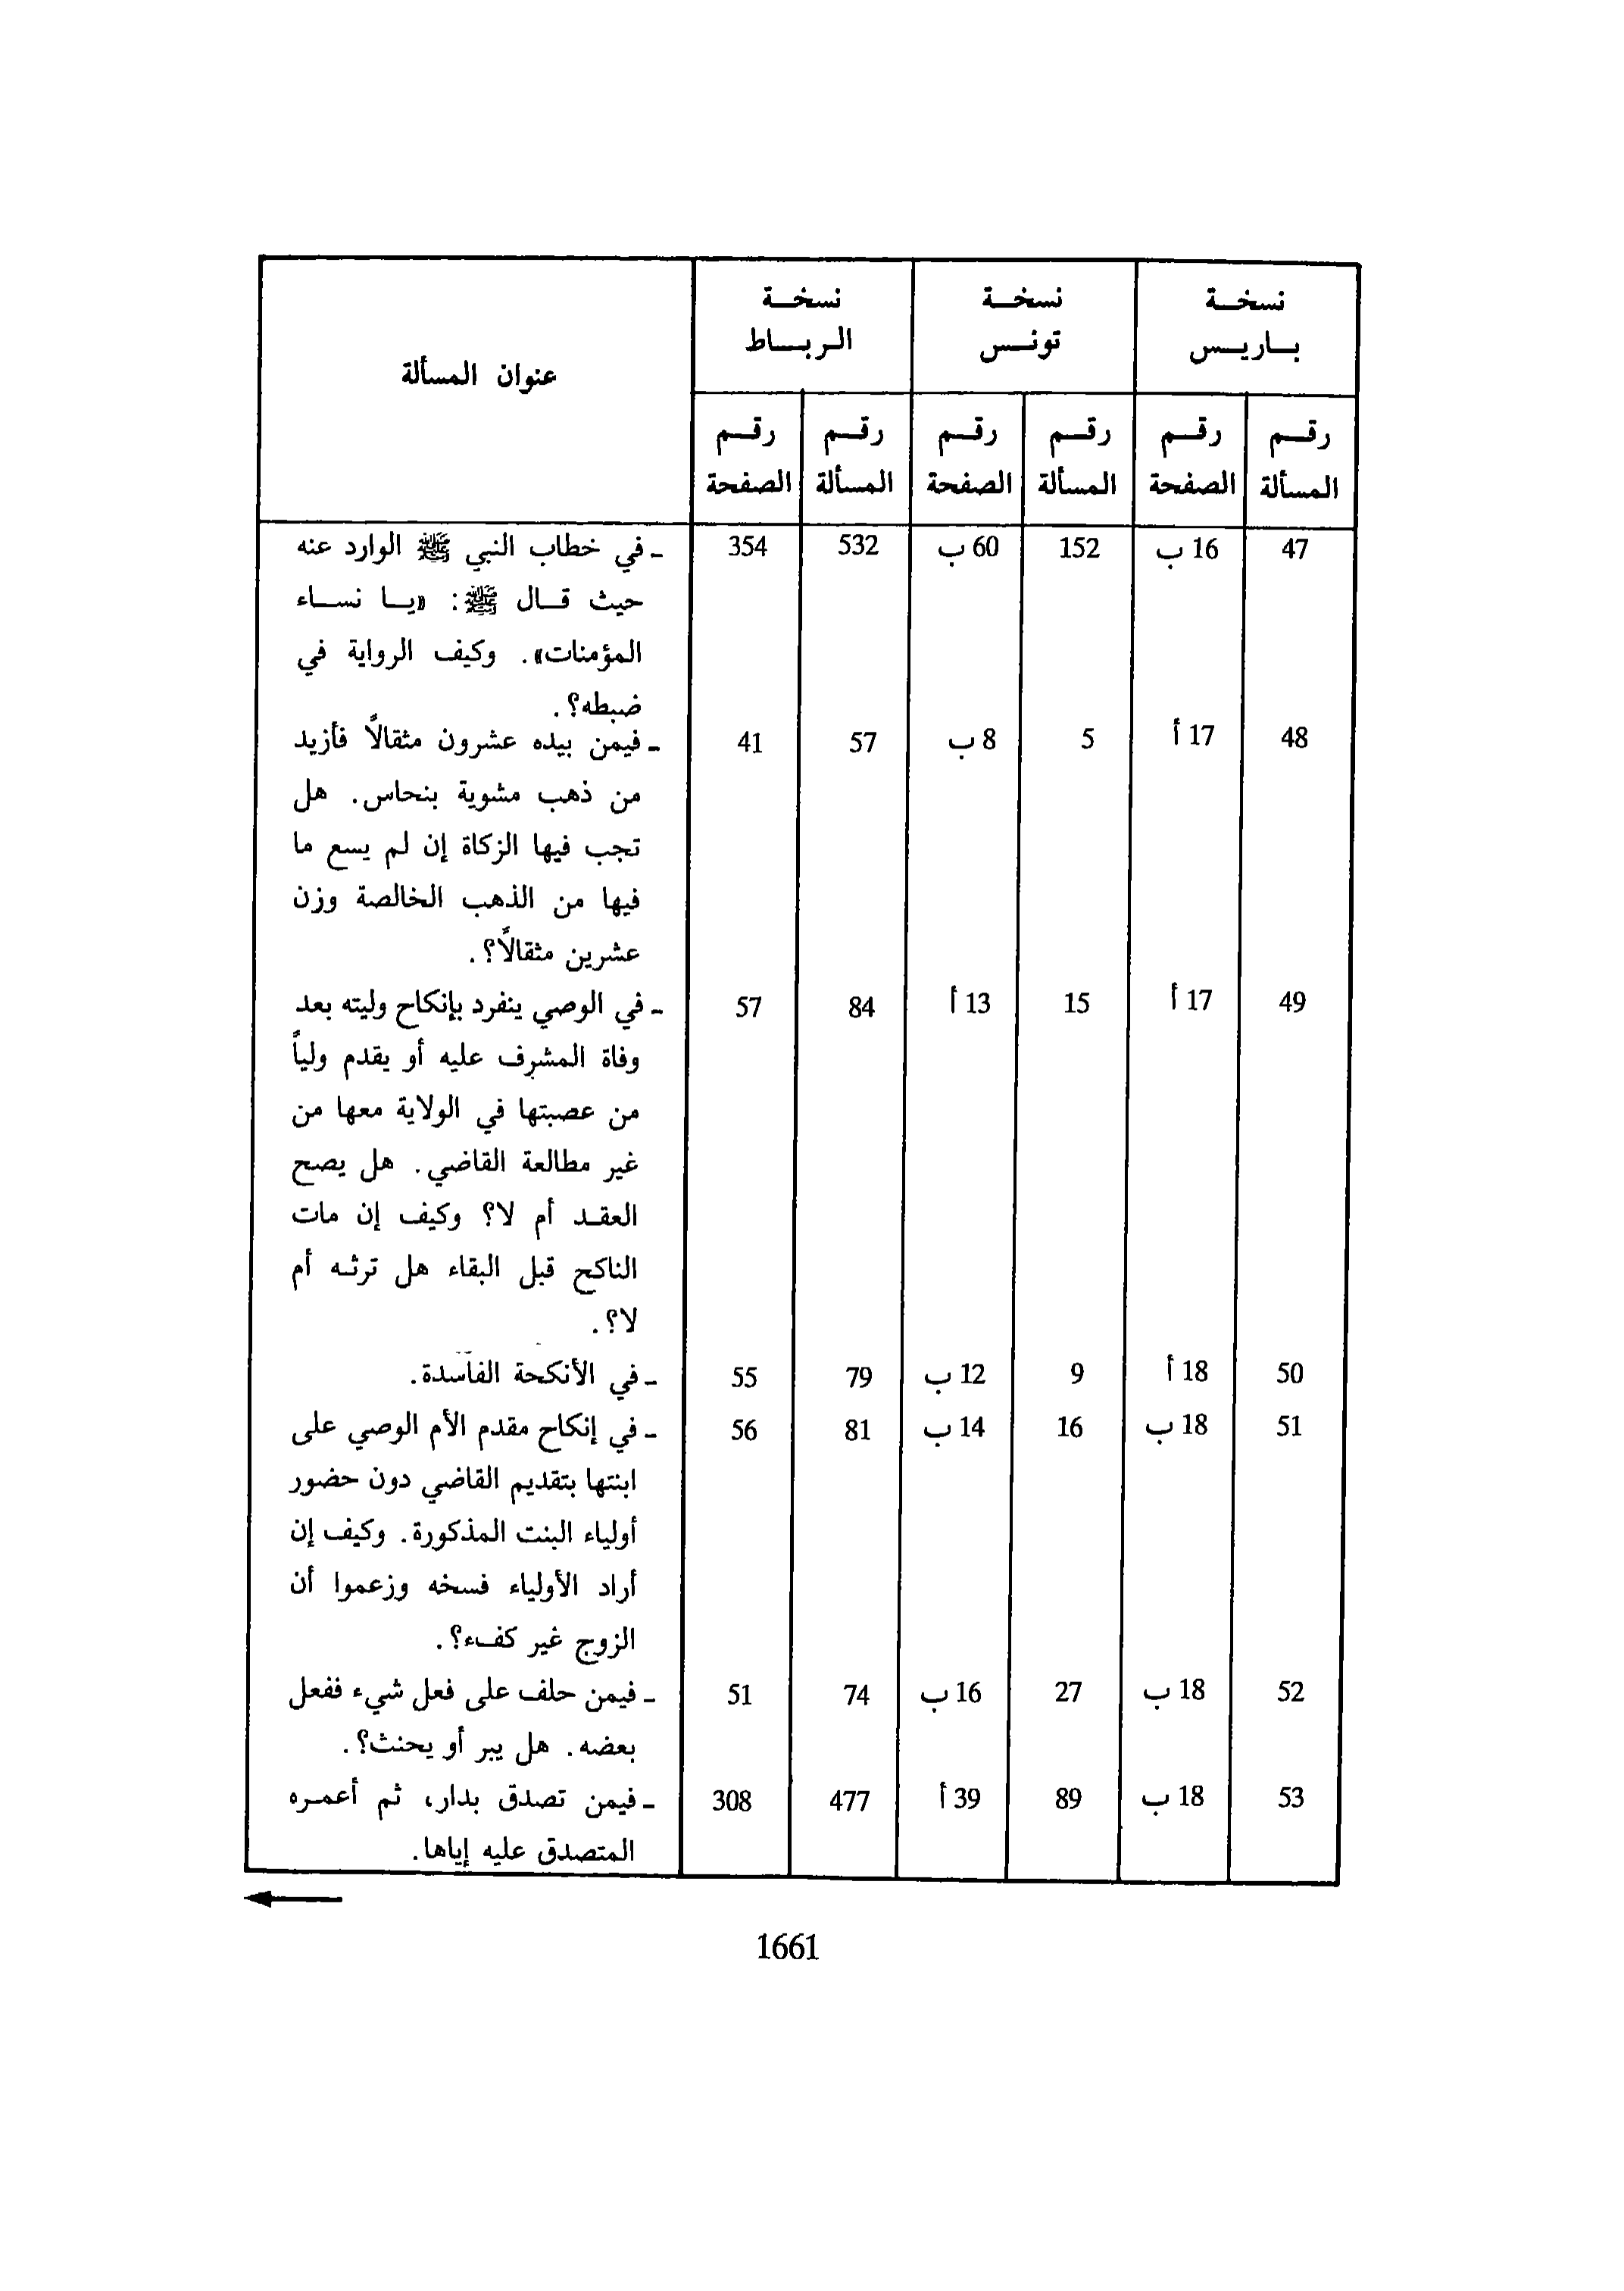 نسخة نسخة نسخة عنوان المسألة
باريس تونس الرباط
رقم رقم رقم رقم رقم رقم
المسألة الصفحة المسألة الصفحة المسألة الصفحة
47 16 ب 152 60 ب 532 354 - في خطاب النبي ﷺ الوارد عنه
حيث قال ﷺ: «يا نساء
المؤمنات». وكيف الرواية في
ضبطه؟.
48 17 أ 5 8 ب 57 41 - فيمن بيده عشرون مثقالًا فأزيد
من ذهب مشوية بنحاس. هل
تجب فيها الزكاة إن لم يسع ما
فيها من الذهب الخالصة وزن
عشرين مثقالًا؟.
49 17 أ 15 13 أ 84 57 - في الوصي ينفرد بإنكاح وليته بعد
وفاة المشرف عليه أو يقدم ولياً
من عصبتها في الولاية معها من
غير مطالعة القاضي. هل يصح
العقد أم لا؟ وكيف إن مات
الناكح قبل البقاء هل ترثه أم
لا؟.
50 18 أ 9 12 ب 79 55 - في الأنكحة الفاسدة.
51 18 ب 16 14 ب 81 56 - في إنكاح مقدم الأم الوصي على
ابنتها بتقديم القاضي دون حضور
أولياء البنت المذكورة. وكيف إن
أراد الأولياء فسخه وزعموا أن
الزوج غير كفء؟.
52 18 ب 27 16 ب 74 51 - فيمن حلف على فعل شيء ففعل
بعضه. هل يبر أو يحنث؟.
53 18 ب 89 39 أ 477 308 - فيمن تصدق بدار، ثم أعمره
المتصدق عليه إياها.
1661